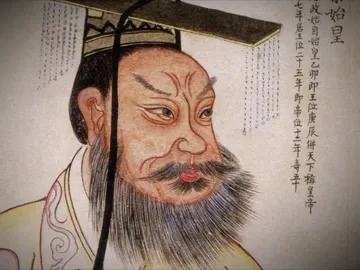 始皇
政始自始皇乙卯即王位庚辰併天下稱皇帝
七年居王位二十五年即帝位十二年壽五十